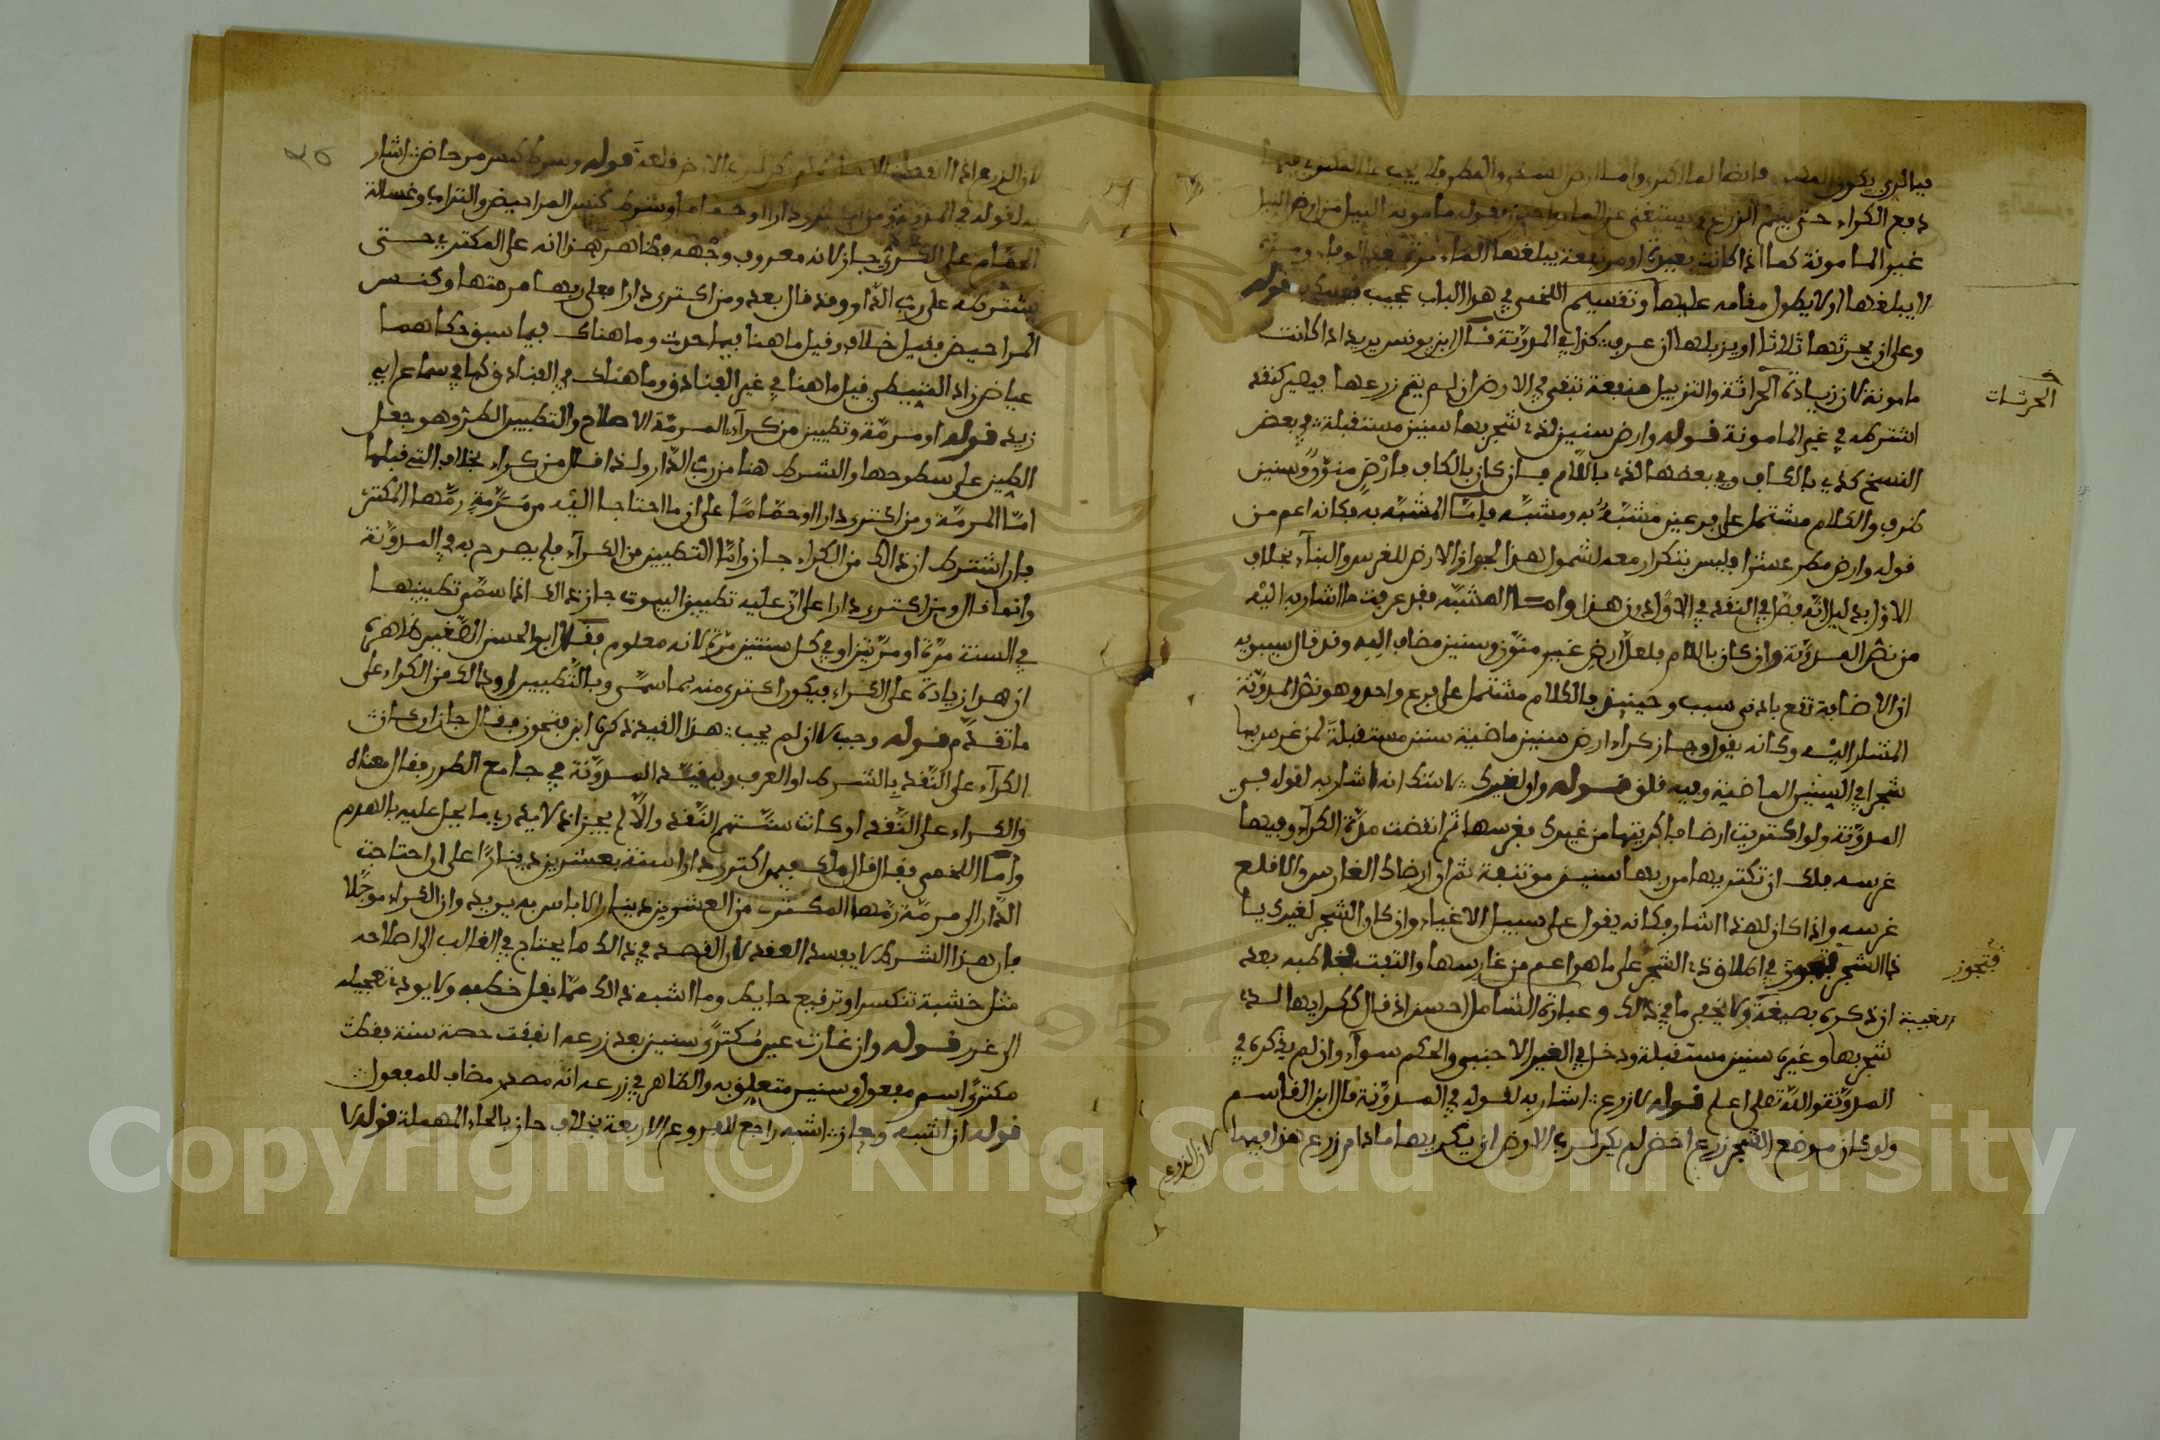 دبع الكراء حتى يتم الزرع ويستغنى عن الماء
غير المامونة كما اذا كانت بعيدة او مرتبعة يبلغها الماء مرة بعد
لا يبلغها او لا يطول مقامه عليها وتقسيم اللخمي في هذا الباب عجيب قوله
وعلى ان يحرثها ثلاثا او يزبلها ان عرف كذا في المدونة قال ابن يونس يريد اذا كانت
مامونة لان زيادة الحراثة والتزبيل منبعة تبقى في الارض ان لم يتم زرعها فيصير كنقد
اشترطه في غير المامونة قوله وارض سنين لذي شجر بها سنين مستقبلة في بعض
النسخ كذي بالكاف وفي بعضها لذي باللام فان كان بالكاف فارض منون وسنين
ظرف والكلام مشتمل على فرعين مشبه به ومشبه فاما المشبه به فكانه اعم من
قوله وارض مطر عشرا وليس بتكرار معه لشمول هذا لجواز الارض للغرس والبناء بخلاف
الاول بدليل انه فصل في النقد في الاول دون هذا واما المشبه فقد عرفت ما اشار به اليه
من نص المدونة وان كان باللام فلعل ارض غير منون وسنين مضاف اليه وقد قال سيبويه
ان الاضافة تقع بادنى سبب وحينئذ فالكلام مشتمل على فرع واحد وهو نص المدونة
المشار اليه وكانه يقول وجاز كراء ارض سنين ماضية سنين مستقبلة لمن غرس بها
شجرا في السنين الماضية وفيه قلق قوله وان لغيرك لا شك انه اشار به لقوله في
المدونة ولو اكتريت ارضا فاكريتها من غيرك فغرسها ثم انقضت مدة الكراء وفيها
غرسه فلك ان تكتريها من ربها سنين موتنبة ثم ان ارضاك الغارس والا قلع
غرسه واذا كان لهذا اشار فكانه يقول على سبيل الاغياء وان كان الشجر لغيرك يا
ذا الشجر فتجوز في اطلاق ذي الشجر على ما هو اعم من غارسها والتفت لخاطبه بعد
ان ذكره بصيغة الغيبة ولا يخفى ما في ذالك وعبارة الشامل احسن اذ قال ككرايها لذي
شجر بها وغيره سنين مستقبلة ودخل في الغير الاجنبي والحكم سواء وان لم يذكره في
المدونة والله تعلى اعلم قوله لا زرع اشار به لقوله في المدونة قال ابن القاسم
ولو كان موضع الشجر زرع اخضر لم يكن لرب الارض ان يكريها ما دام زرع هذا فيها
لان الزرع
الحرثات
فتجوز
الغيبة
لان الزرع اذا انقضت الاجارة لم يكن لرب الارض قلعه قوله وشرط كنس مرحاض اشار
به لقوله في المدونة ومن اكترى دارا او حماما وشرط كنس المراحيض والتراب وغسالة
الحمام على المكري جاز لانه معروف وجهه فظاهر هذا انه على المكتري حتى
يشترطه على رب الدار وقد قال بعد ومن اكترى دارا فعلى ربها مرمتها وكنس
المراحيض فقيل خلاف وقيل ما هنا فيما حدث وما هناك فيما سبق حكاهما
عياض زاد القبيطي قيل ما هنا في غير الفنادق وما هناك في الفنادق كما في سماع ابي
زيد قوله او مرمة وتطيين من كراء المرمة الاصلاح والتطيين الطر وهو جعل
الطين على سطوحها والشرط هنا من رب الدار ولذا قال من كراء بخلاف التي قبلها
اما المرمة ومن اكترى دارا او حماما على ان ما احتاجا اليه من مرمة رمها المكتري
فان اشترط ان ذالك من الكراء جاز واما التطيين من الكراء فلم يصرح به في المدونة
وانما قال ومن اكترى دارا على ان عليه تطيين البيوت جاز ذالك اذا سمى تطيينها
في السنة مرة او مرتين او في كل سنتين مرة لانه معلوم فقال ابو الحسن الصغير ظاهره
ان هذا زيادة على الكراء فيكون اكترى منه بما سمى وبالتطيين او وذالك من الكراء على
ما تقدم قوله وجب لا ان لم يجب هذا القيد ذكره ابن فتحون فقال جاز ان كان
الكراء على النقد بالشرط او العرف وبه قيد المدونة في جامع الطرر فقال معناه
والكراء على النقد او كانت سنتهم النقد والا لم يجز اذ لا يدري ما يحل عليه بالهدم
واما اللخمي فقال قال ملك فيمن اكترى دارا سنة بعشرين دينارا على ان احتاجت
الدار الى مرمة رمها المكتري من العشرين دينارا لا باس به يريد وان الكراء موجلا
فان هذا الشرط لا يفسد العقد لان القصد في ذالك ما يحتاج في الغالب الى اصلاحه
مثل خشبة تنكسر او ترقيع حايط وما اشبه ذالك مما يقل خطبه ولا يودي تعجيله
الى غرر قوله وان غارت عين مكترى سنين بعد زرعه انفقت حصة سنة فقط
مكترى اسم مفعول وسنين متعلق به والظاهر في زرعه انه مصدر مضاف للمفعول
قوله ان اشبه وجاز اشبه راجع للفروع الاربعة بخلاف حاز بالحاء المهملة قوله لا